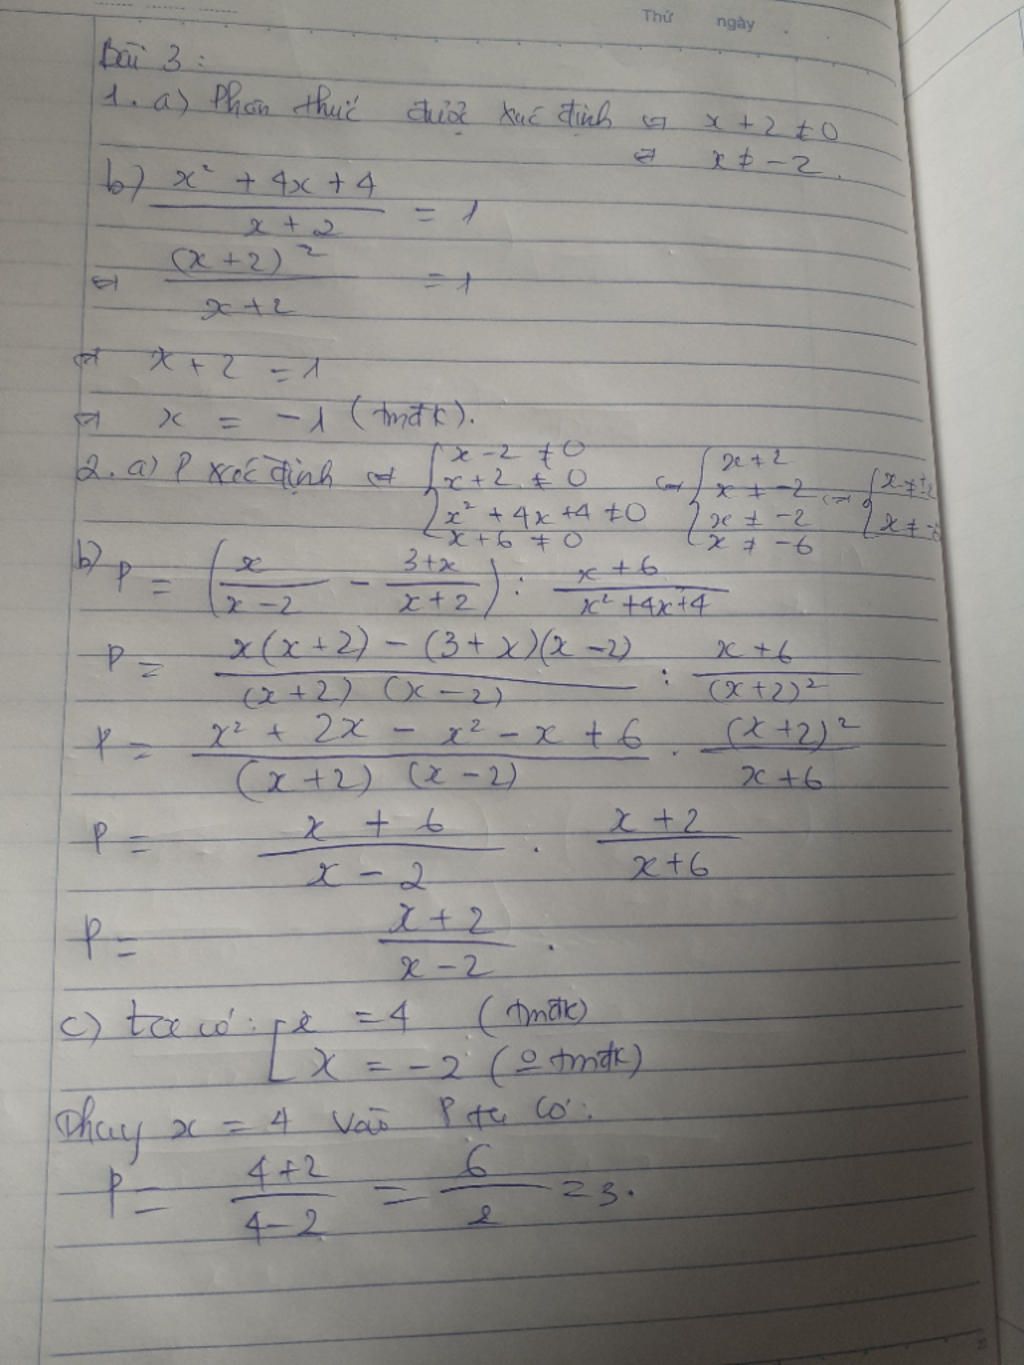 Thứ ngày
Bài 3:
1. a) Phân thức được xác định ⇔ x + 2 ≠ 0
⇔ x ≠ -2.
b) (x² + 4x + 4)/(x + 2) = 1
⇔ (x+2)²/(x+2) = 1
⇔ x + 2 = 1
⇔ x = -1 (tmđk).
2. a) P xác định ⇔ { x - 2 ≠ 0; x + 2 ≠ 0; x² + 4x + 4 ≠ 0; x + 6 ≠ 0 ⇔ { x ≠ 2; x ≠ -2; x ≠ -2; x ≠ -6 ⇔ { x ≠ ±2; x ≠ -6
b) P = (x/(x-2) - (3+x)/(x+2)) : (x+6)/(x²+4x+4)
P = (x(x+2) - (3+x)(x-2))/((x+2)(x-2)) : (x+6)/(x+2)²
P = (x² + 2x - x² - x + 6)/((x+2)(x-2)) . (x+2)²/(x+6)
P = (x + 6)/(x - 2) . (x+2)/(x+6)
P = (x+2)/(x-2) .
c) ta có: [ x = 4 (tmđk)
x = -2 (o tmđk)
Thay x = 4 vào P ta có:
P = (4+2)/(4-2) = 6/2 = 3.